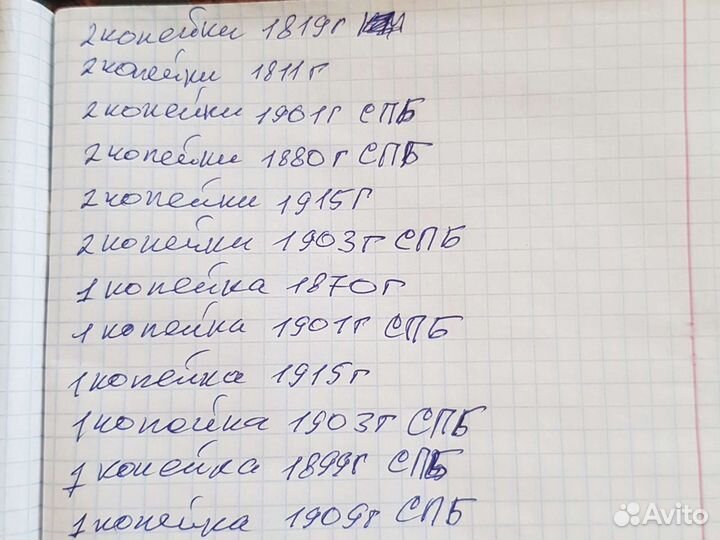 2 копейки 1819г
2 копейки 1811г
2 копейки 1901г СПБ
2 копейки 1880г СПБ
2 копейки 1915г
2 копейки 1903г СПБ
1 копейка 1870г
1 копейка 1901г СПБ
1 копейка 1915г
1 копейка 1903г СПБ
1 копейка 1899г СПБ
1 копейка 1909г СПБ
Avito